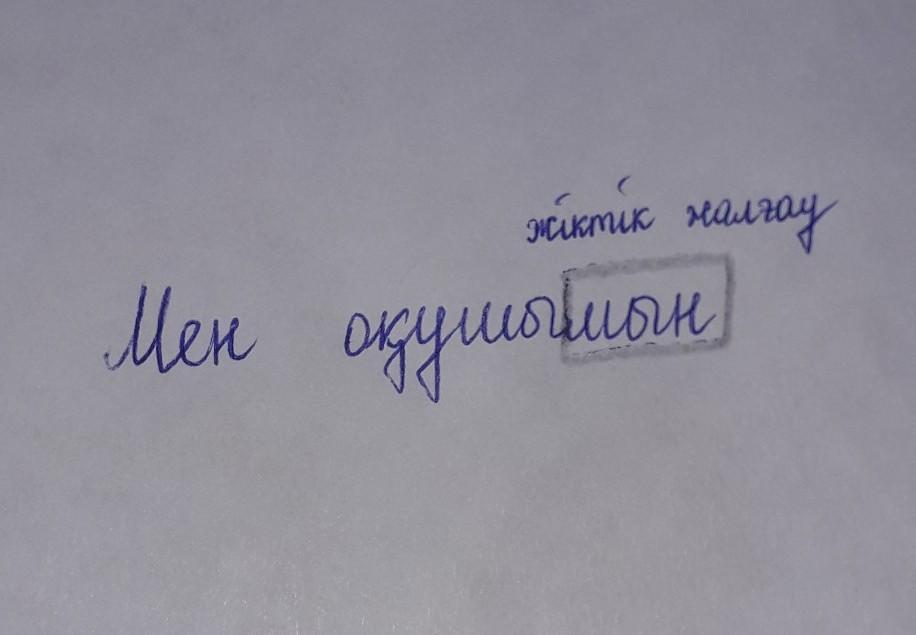 жіктік жалғау
Мен оқушымын